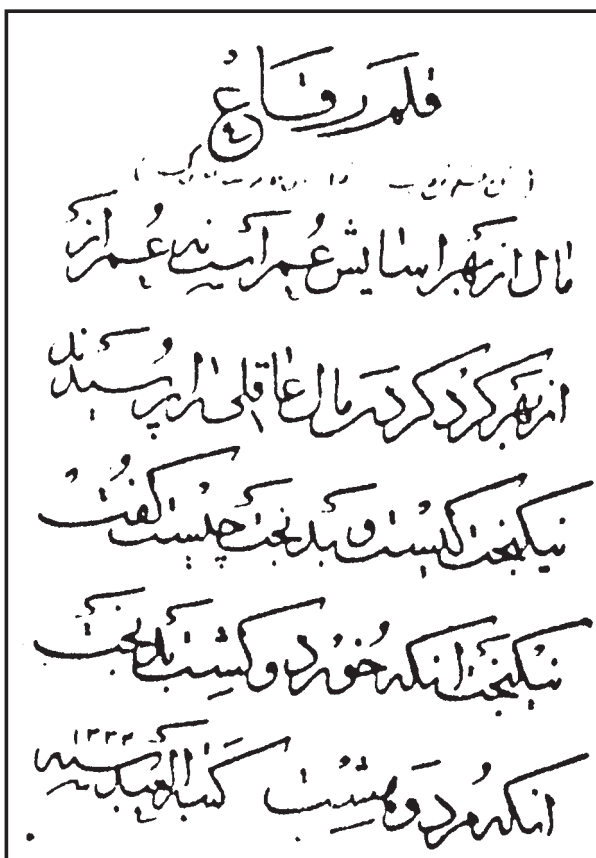 قلم رقاع
۴
مال از بهر اسایش عمر است نه عمر از
از بهر کرد کردن مال عاقلی را پرسیدند
نیکبخت کیست و بدبخت چیست کفت
نیکبخت انکه خورد و کشت بدبخت
انکه مرد و هشت کتبه العبد